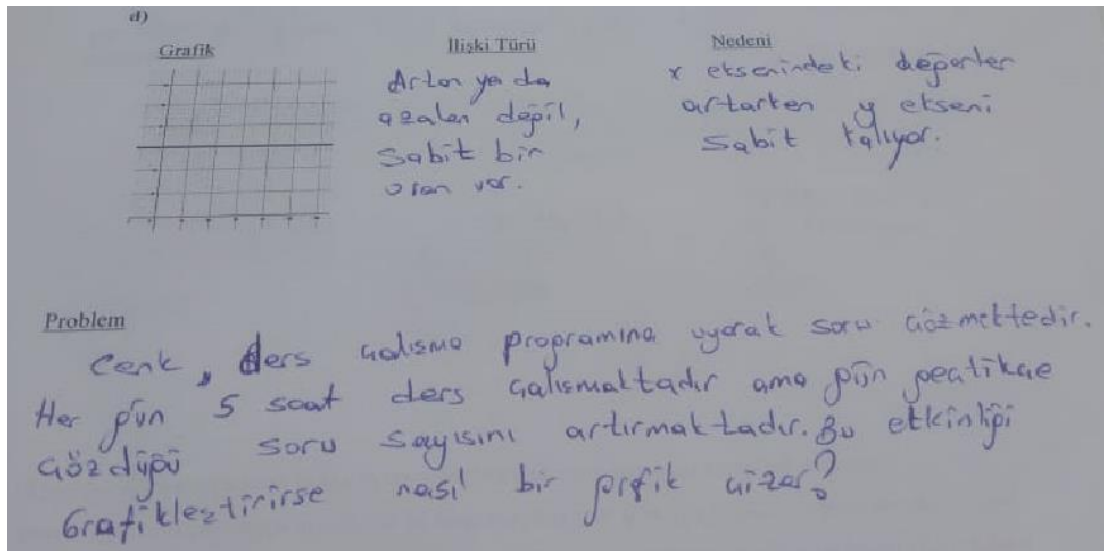 d)
Grafik
İlişki Türü
Artan ya da
azalan değil,
Sabit bir
oran var.
Nedeni
x eksenindeki değerler
artarken y ekseni
Sabit kalıyor.
Problem
Cenk, ders çalışma programına uyarak soru çözmektedir.
Her gün 5 saat ders çalışmaktadır ama gün geçtikçe
çözdüğü soru sayısını artırmaktadır. Bu etkinliği
Grafikleştirirse nasıl bir grfik çizer?